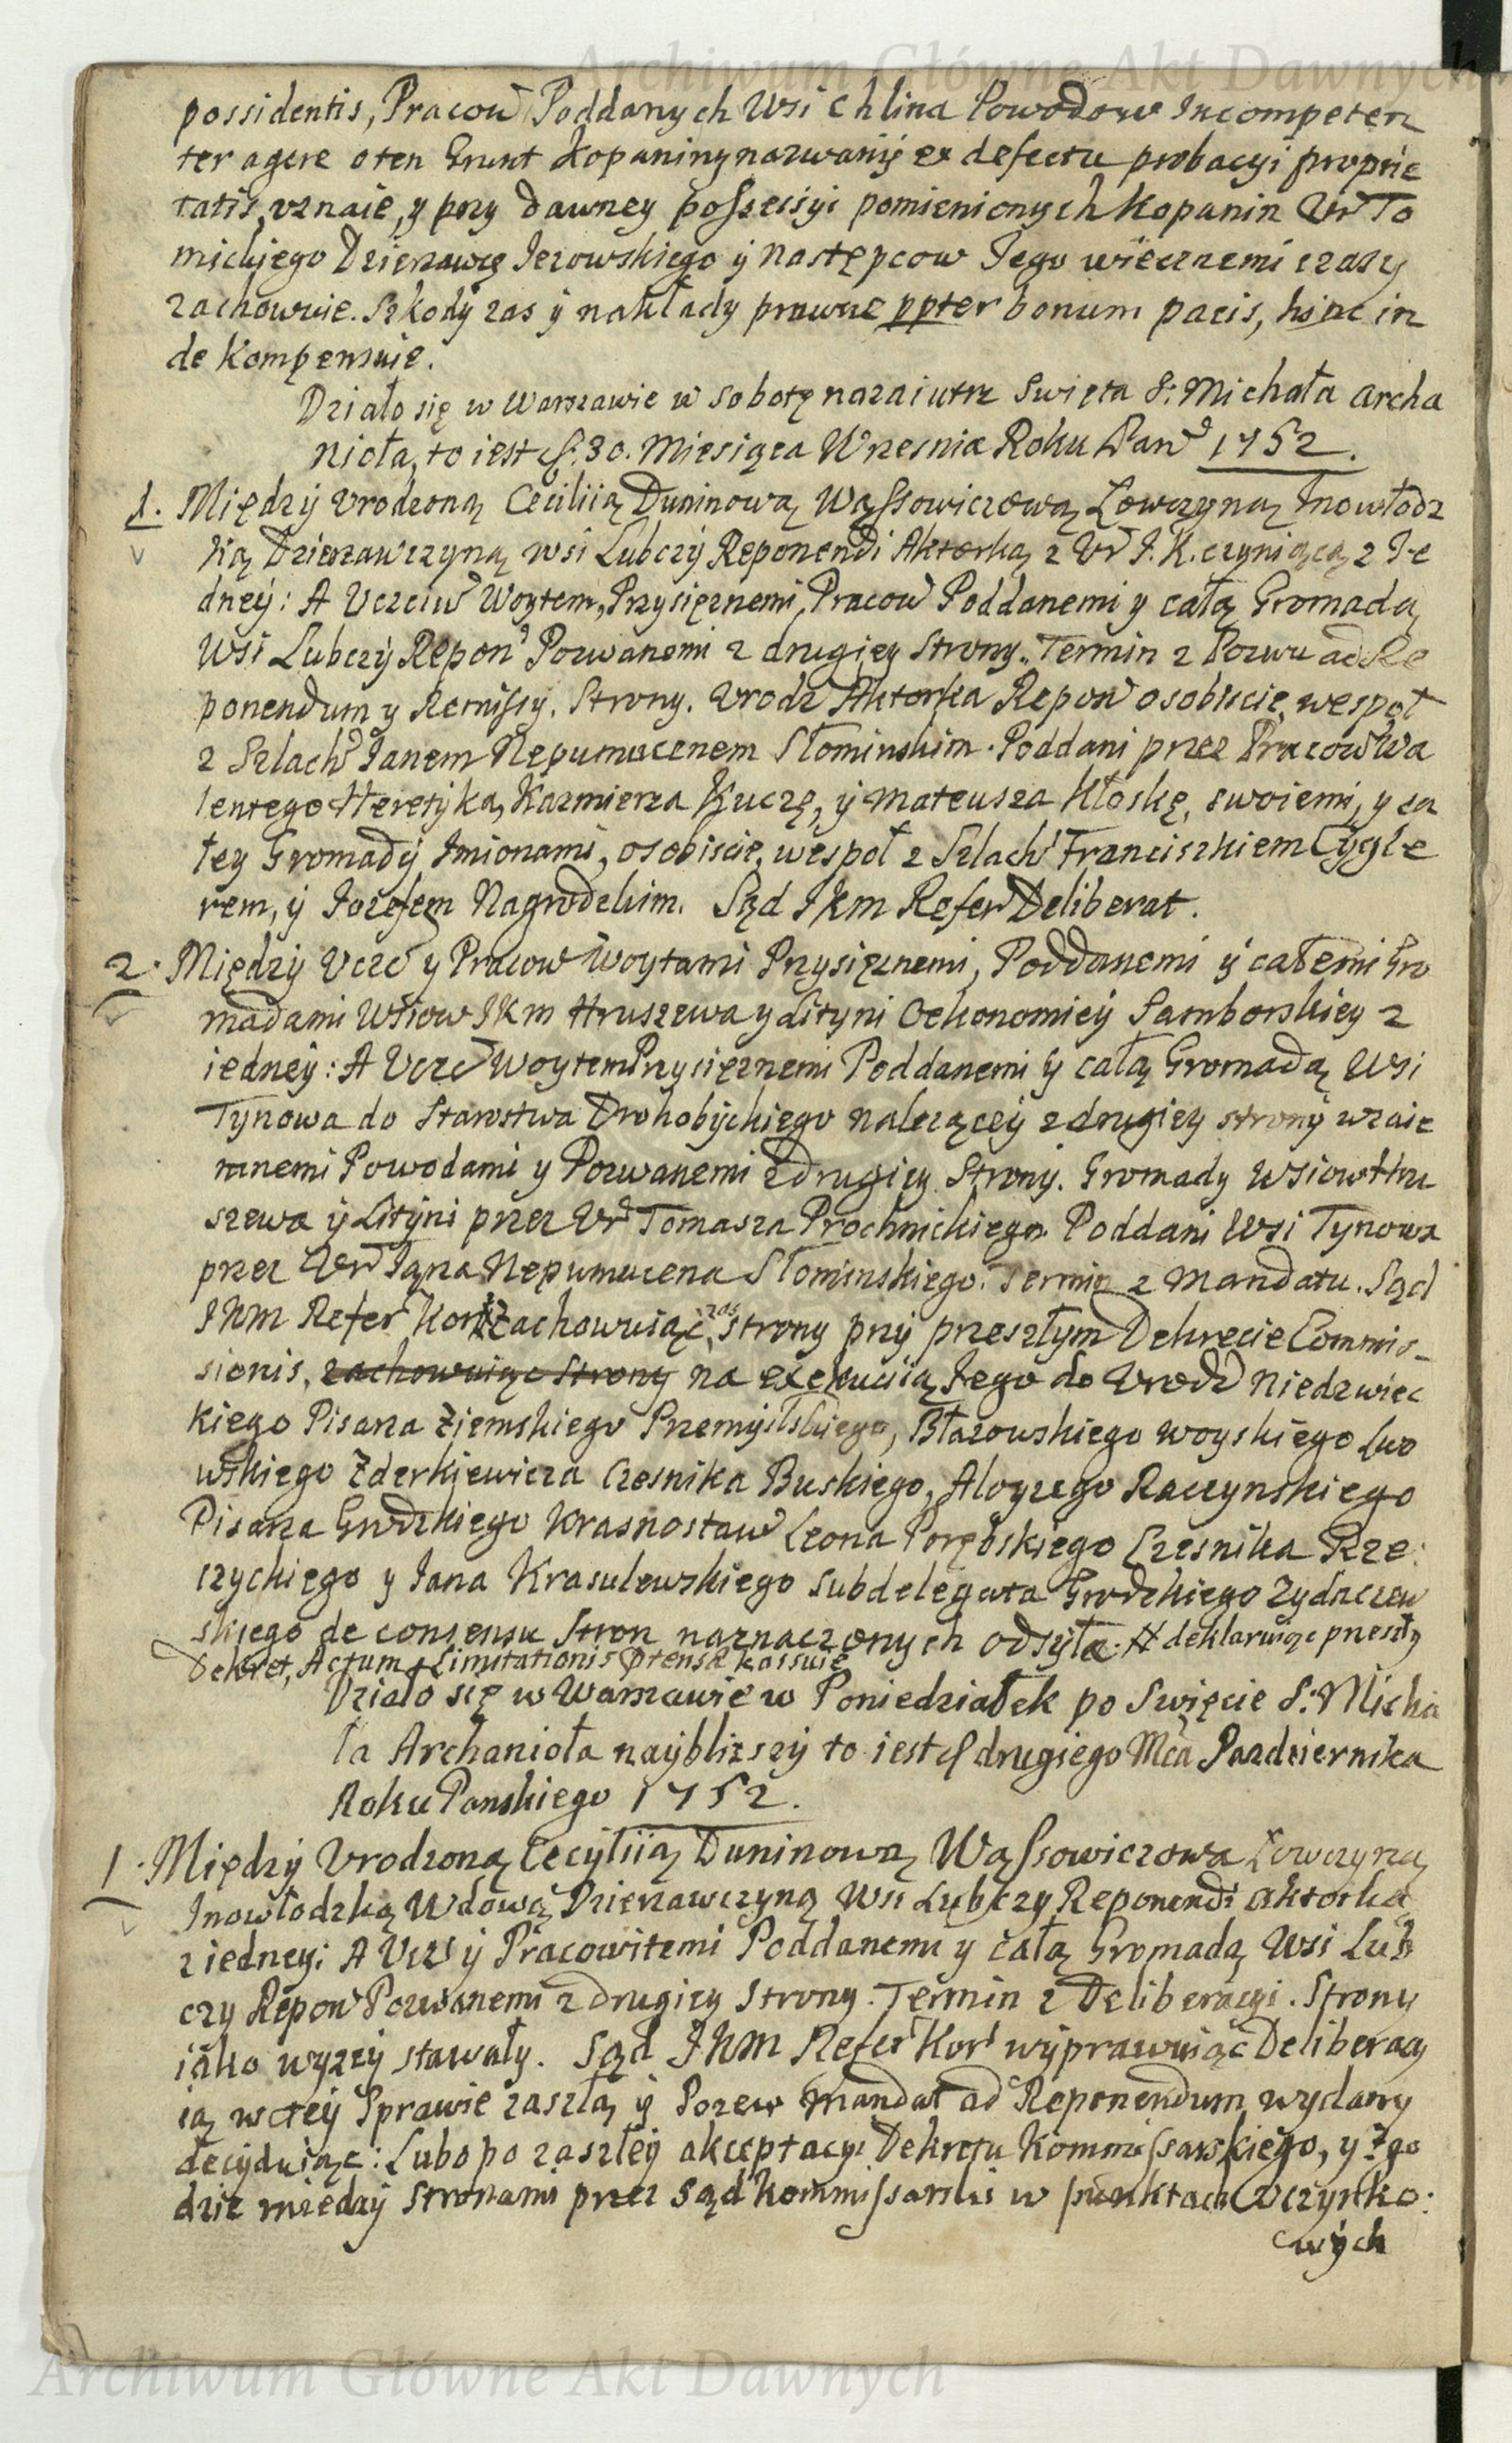 Archiwum Główne Akt Dawnych
possidentis, Pracow Poddanych Wsi Chlina Powodow Incompeten
ter agere o ten Grunt Kopaniny nazwany ex defectu probacyi proprie
tatis, uznaie, y przy dawney possessyi pomienionych Kopanin Ur To
mickiego Dzierzawcę Jezowskiego y Następcow Jego wiecznemi czasy
zachowuie. Szkody zas y nakłady prawne ppter bonum pacis, hinc in
de Kompensuie.
Działo się w Warszawie w Sobotę nazaiutrz Swięta S. Michała Archa
nioła, to iest d. 30. Miesiąca Wrzesnia Roku Pań 1752.
1. Między Vrodzoną Ceciliią Duninową Wąssowiczową Łowczyną Inowłodz
ką Dzierzawczyną wsi Lubczy Reponendi Aktorką z Ur J. K. czyniącą z Je
dney: A Vczciw Woytem, Przysięznemi, Pracow Poddanemi y całą Gromadą
Wsi Lubczy Repon Pozwanemi z drugiey Strony. Termin z Pozwu ad Re
ponendum y Remissy. Strony. Vrodz Aktorka Repon osobiscie, wespoł
z Szlach Janem Nepumucenem Słominskim. Poddani przez Pracow Wa
lentego Heretyka, Kazmierza Kuczę, y Mateusza Kłoskę, swoiemi, y ca
łey Gromady Imionami, osobiscie, wespoł z Szlach Franciszkiem Cygle
rem, y Jozefem Nagrodzkim. Sąd JKM Refer Deliberat.
2. Między Vczc y Pracow Woytami Przysięznemi, Poddanemi y całemi Gro
madami Wsiow JKM Hruszewa y Lityni Oekonomiey Samborskiey z
iedney: A Vczc Woytem Przysięznemi Poddanemi y całą Gromadą Wsi
Tynowa do Starostwa Drohobyckiego nalezącey z drugiey strony wzaie
mnemi Powodami y Pozwanemi z drugiey Strony. Gromady Wsiow Hru
szewa y Lityni przez Ur Tomasza Prochnickiego. Poddani Wsi Tynowa
przez Ur Jana Nepumucena Słominskiego. Termin z Mandatu. Sąd
JKM Refer Kor # zachowuiąc zas strony przy przeszłym Dekrecie Commis-
sionis, zachowuiąc Strony na exekucyią Jego do Vrodz Niedzwiec
kiego Pisarza Ziemskiego Przemyslskiego, Błazowskiego Woyskiego Lwo
wskiego Zderkiewicza Czesnika Buskiego, Aloyzego Raczynskiego
Pisarza Grodzkiego Krasnostaw Leona Porębskiego Czesnika Rze
czyckiego y Jana Krasulewskiego Subdelegata Grodzkiego Zydaczew
skiego de consensu Stron naznaczonych odsyła. # deklaruiąc przeszły
Dekret, Actum Limitationis ptensae kassuie
Działo się w Warszawie w Poniedziałek po Swięcie S. Micha
ła Archanioła naybliższy to iest d drugiego Mca Pazdziernika
Roku Panskiego 1752.
1. Między Vrodzoną Cecyliią Duninową Wąssowiczową Łowczyną
Inowłodzką Wdową Dzierzawczyną Wsi Lubczy Reponendi Aktorką
z iedney: A Vczc y Pracowitemi Poddanemi y całą Gromadą Wsi Lub
czy Repon Pozwanemi z drugiey Strony. Termin z Deliberacyi. Strony
iako wyzey stawały. Sąd JKM Refer Kor wyprawuiąc Deliberacy
ią w tey Sprawie zaszłą y Pozew Mandat ad Reponendum wydany
decyduiąc: Lubo po zaszłey akceptacyi Dekretu Kommissarskiego, y Zgo
dzie między Stronami przez Sąd Kommissarski w punktach Vczynko:
wych
Archiwum Główne Akt Dawnych